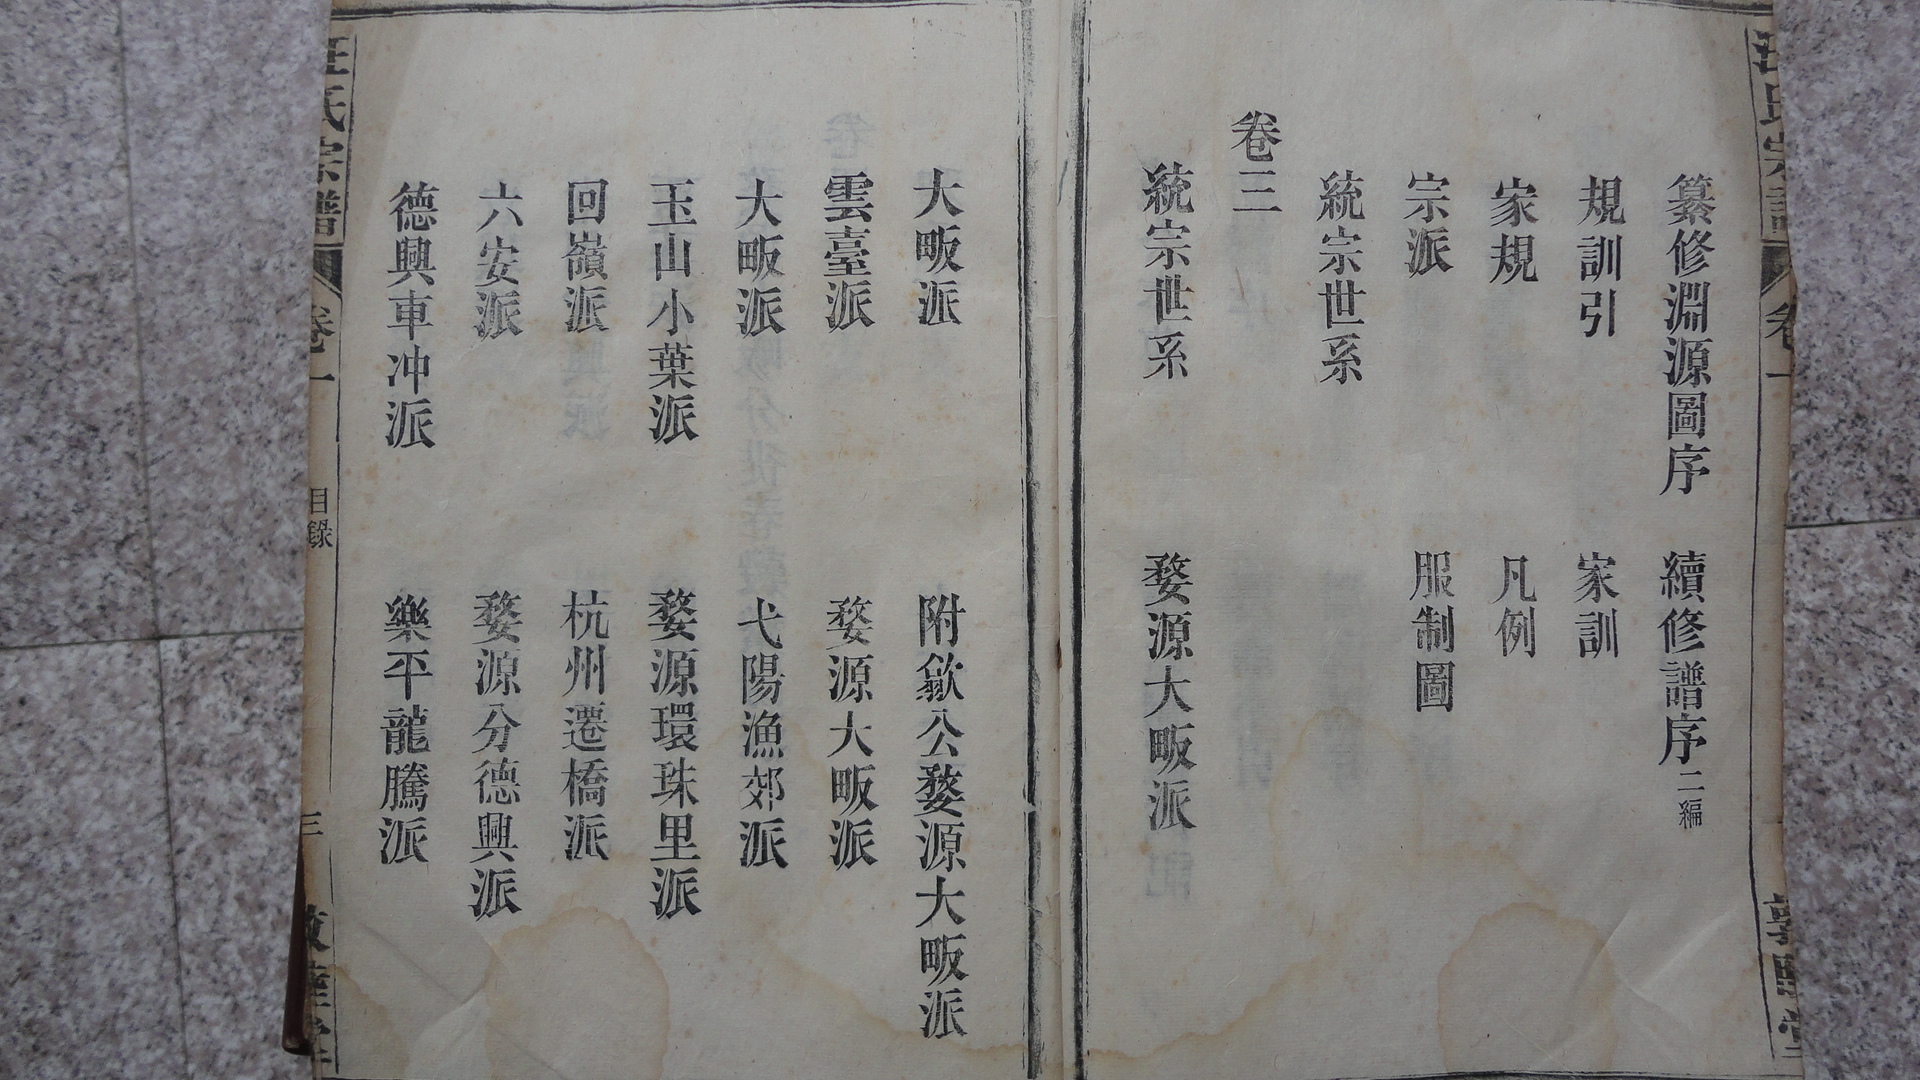 纂修淵源圖序 續修譜序二編
規訓引 家訓
家規 凡例
宗派 服制圖
統宗世系
卷三
統宗世系 婺源大畈派
大畈派 附歙公婺源大畈派
雲臺派 婺源大畈派
大畈派 弋陽漁郊派
玉山小葉派 婺源環珠里派
回嶺派 杭州遷橋派
六安派 婺源分德興派
德興車冲派 樂平龍騰派
汪氏宗譜 卷一 目錄 三